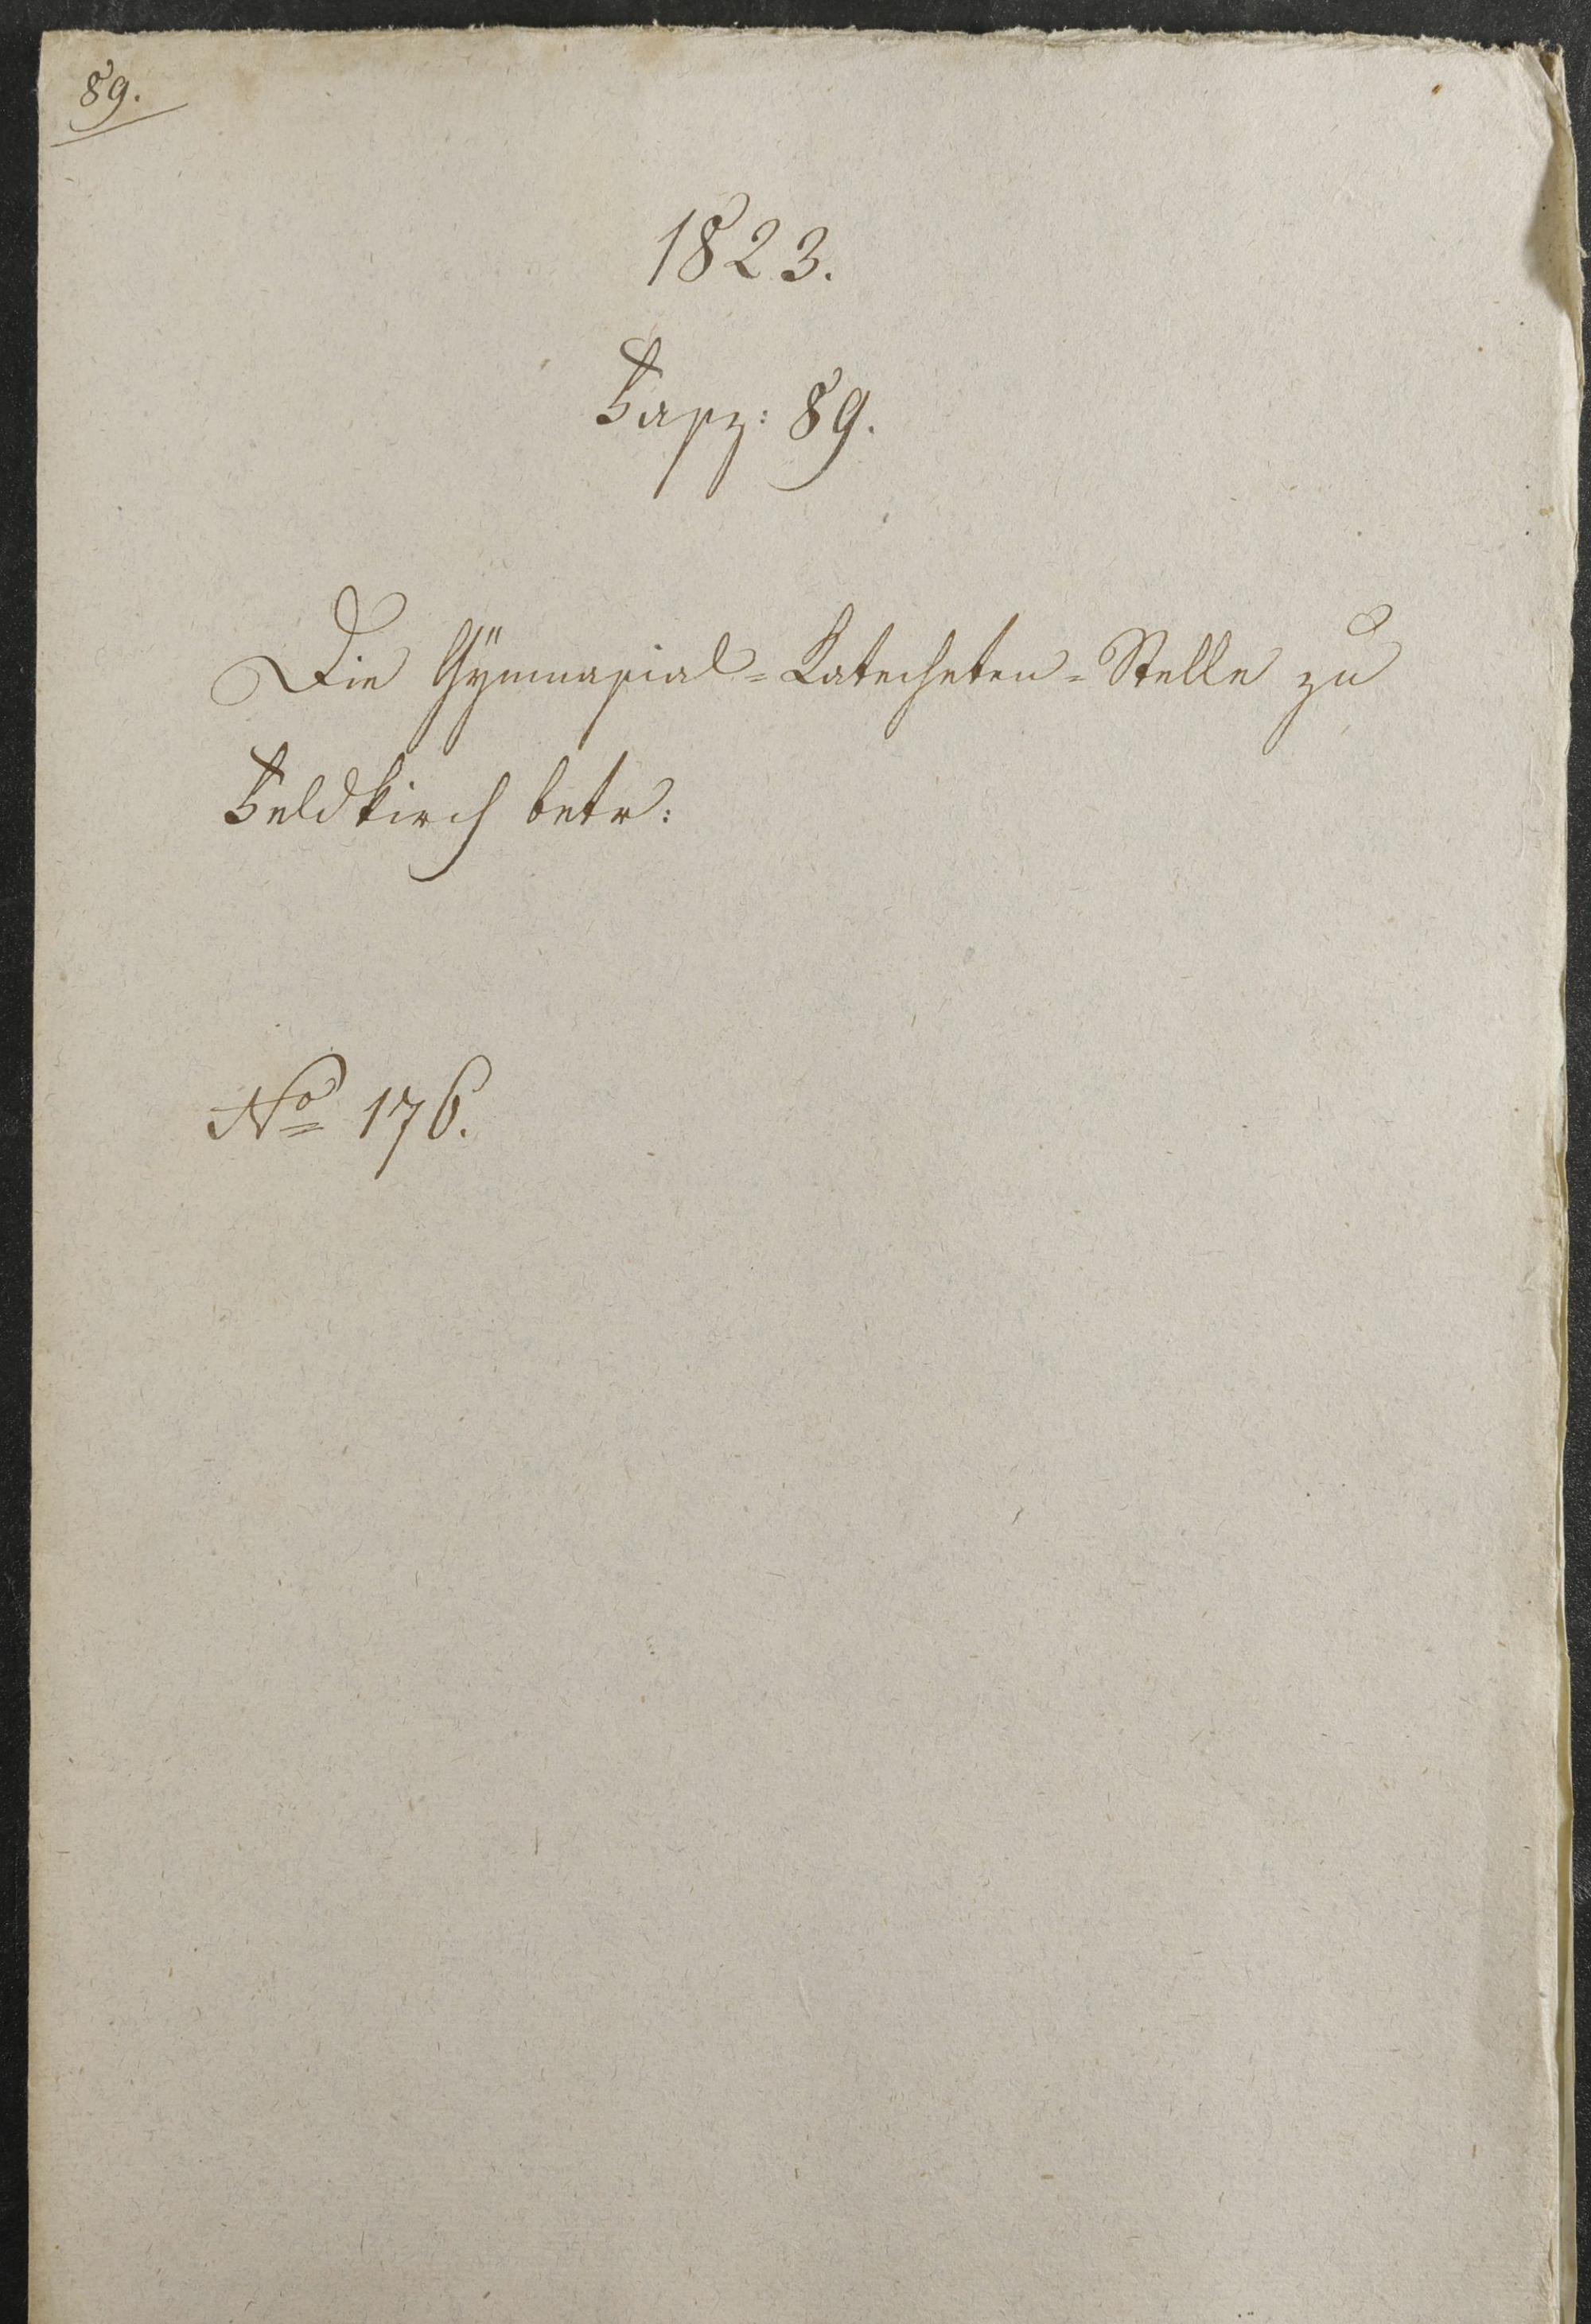 89.
1823.
Fasz: 89.
Die Gÿmnasial=Katecheten=Stelle zu
Feldkirch betr:
No 176.